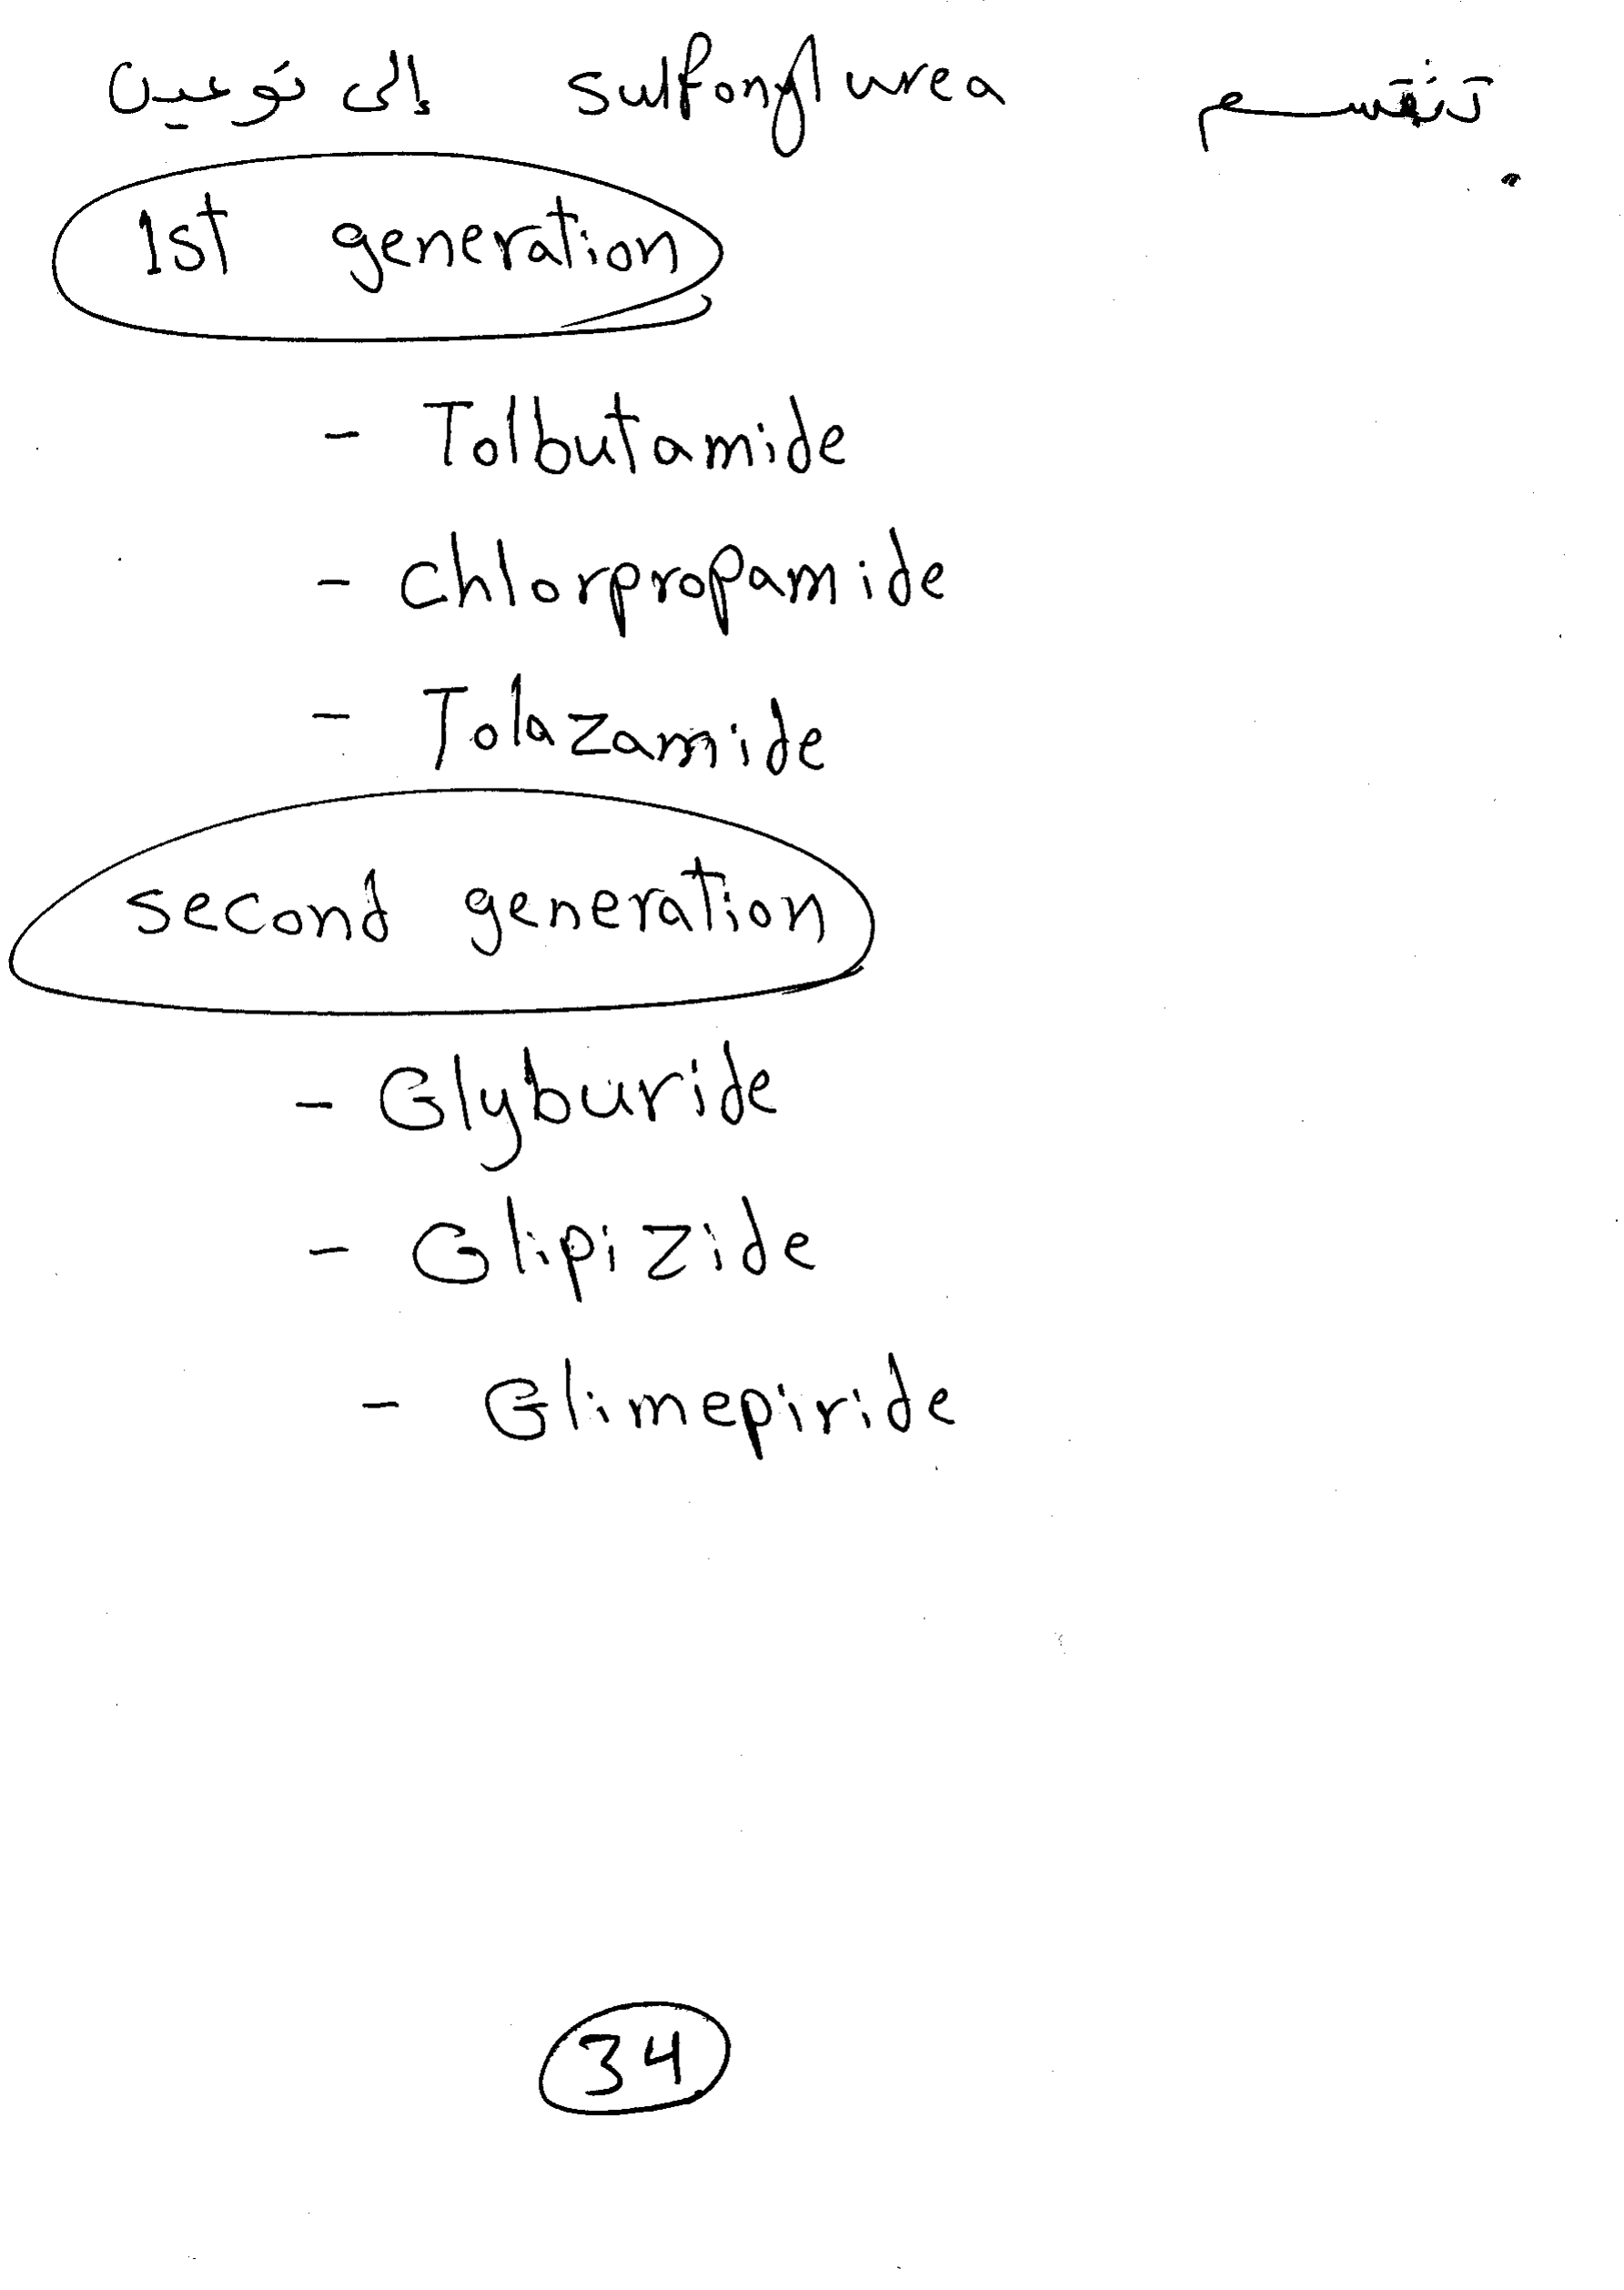 تنقسم sulfonylurea إلى نوعين
1st generation
- Tolbutamide
- chlorpropamide
- Tolazamide
second generation
- Glyburide
- Glipizide
- Glimepiride
34